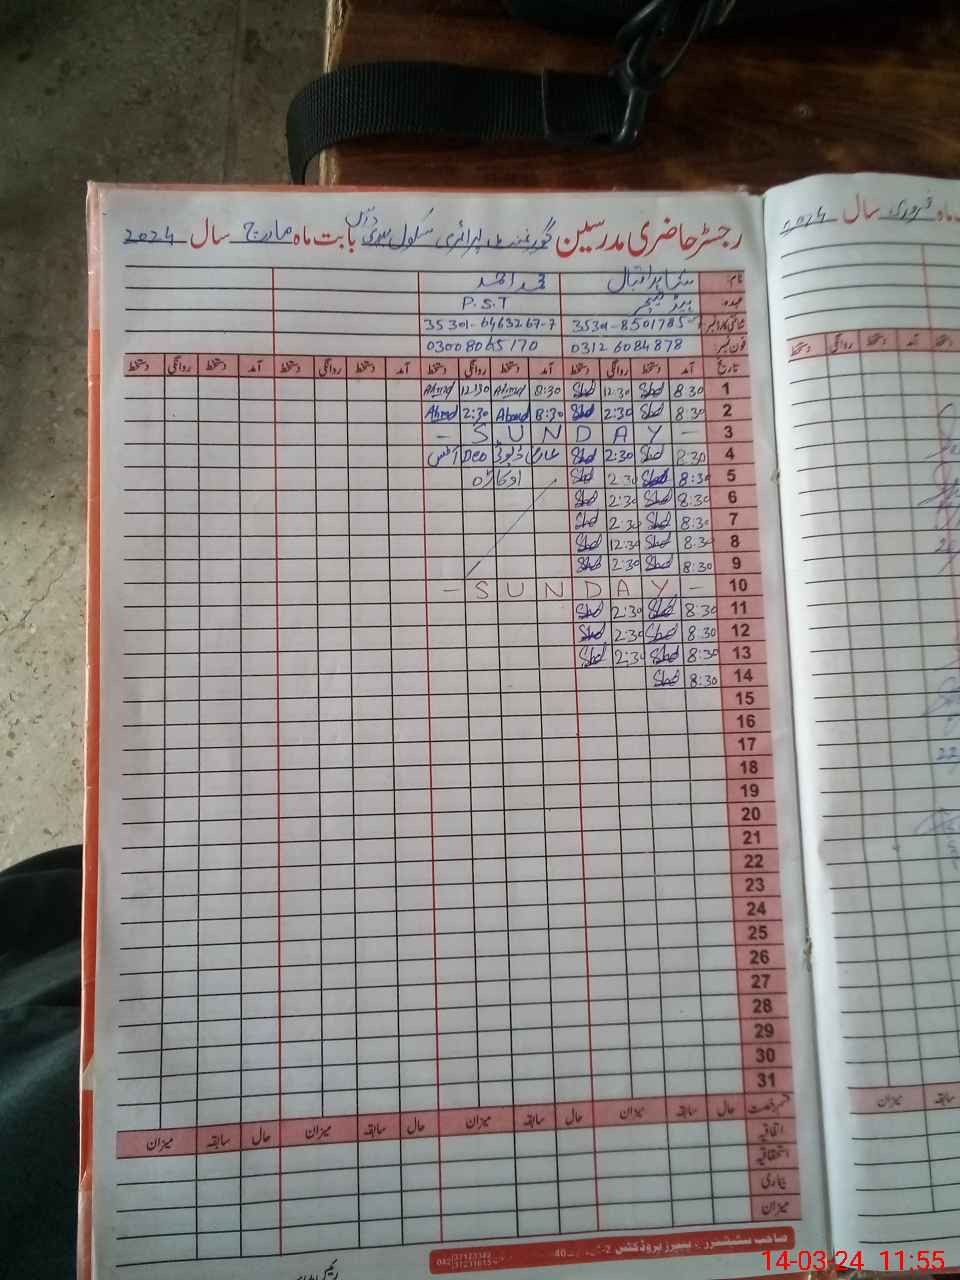 رجسٹر حاضری مدرسین گورنمنٹ پرائمری سکول بابت ماہ مارچ سال 2024
نام: اقبال محمد احمد
عہدہ: ہیڈ ٹیچر P.S.T
شناختی کارڈ نمبر 35301-8501785 35301-6463267-7
فون نمبر: 0312 6084878 03008065170
تاریخ آمد دستخط روانگی دستخط آمد دستخط روانگی دستخط آمد دستخط روانگی دستخط آمد دستخط روانگی دستخط
1 8:30 Shd 12:30 Shd 8:30 Ahmad 12:30 Ahmad
2 8:30 Shd 2:30 Shd 8:30 Ahmad 2:30 Ahmad
3 - S U N D A Y -
4 8:30 Shd 2:30 Shd عارضی ڈیوٹی DEO آفس
5 8:30 Shd 2:30 Shd اوکاڑہ
6 8:30 Shd 2:30 Shd
7 8:30 Shd 2:30 Shd
8 8:30 Shd 12:30 Shd
9 8:30 Shd 2:30 Shd
10 - S U N D A Y -
11 8:30 Shd 2:30 Shd
12 8:30 Shd 2:30 Shd
13 8:30 Shd 2:30 Shd
14 8:30 Shd
15
16
17
18
19
20
21
22
23
24
25
26
27
28
29
30
31
قسم رخصت حال سابقہ میزان حال سابقہ میزان حال سابقہ میزان حال سابقہ میزان
اتفاقیہ
استحقاقیہ
بیماری
میزان
صاحب سٹیشنرز پیپرز پروڈکٹس
ماہ فروری سال 2024
14-03-24 11:55